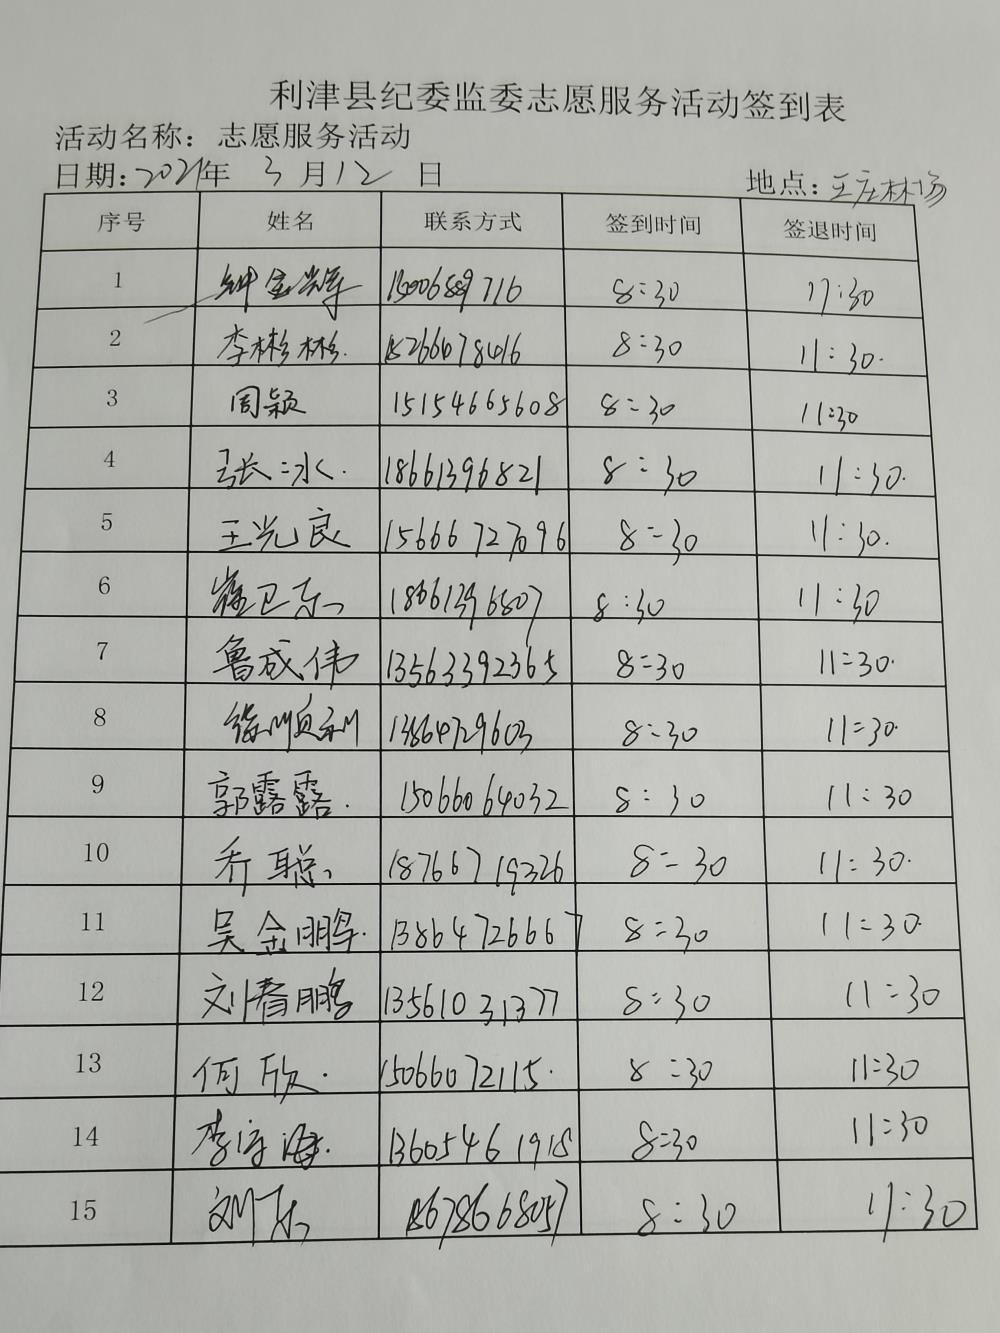 利津县纪委监委志愿服务活动签到表
活动名称：志愿服务活动
日期：2021年 3月12日 地点：王庄林场
序号 姓名 联系方式 签到时间 签退时间
1 8:30 11:30
2 李彬彬 15266478416 8:30 11:30
3 周颖 15154665608 8:30 11:30
4 张冰 18661396821 8:30 11:30
5 王光良 15666727096 8:30 11:30
6 崔卫东 18661396807 8:30 11:30
7 鲁成伟 13563392365 8:30 11:30
8 徐顺利 13864729603 8:30 11:30
9 郭露露 15066064032 8:30 11:30
10 乔聪 18766719326 8:30 11:30
11 吴金鹏 13864726667 8:30 11:30
12 刘春鹏 13561031377 8:30 11:30
13 何欣 15066072115 8:30 11:30
14 13605461918 8:30 11:30
15 15678668057 8:30 11:30